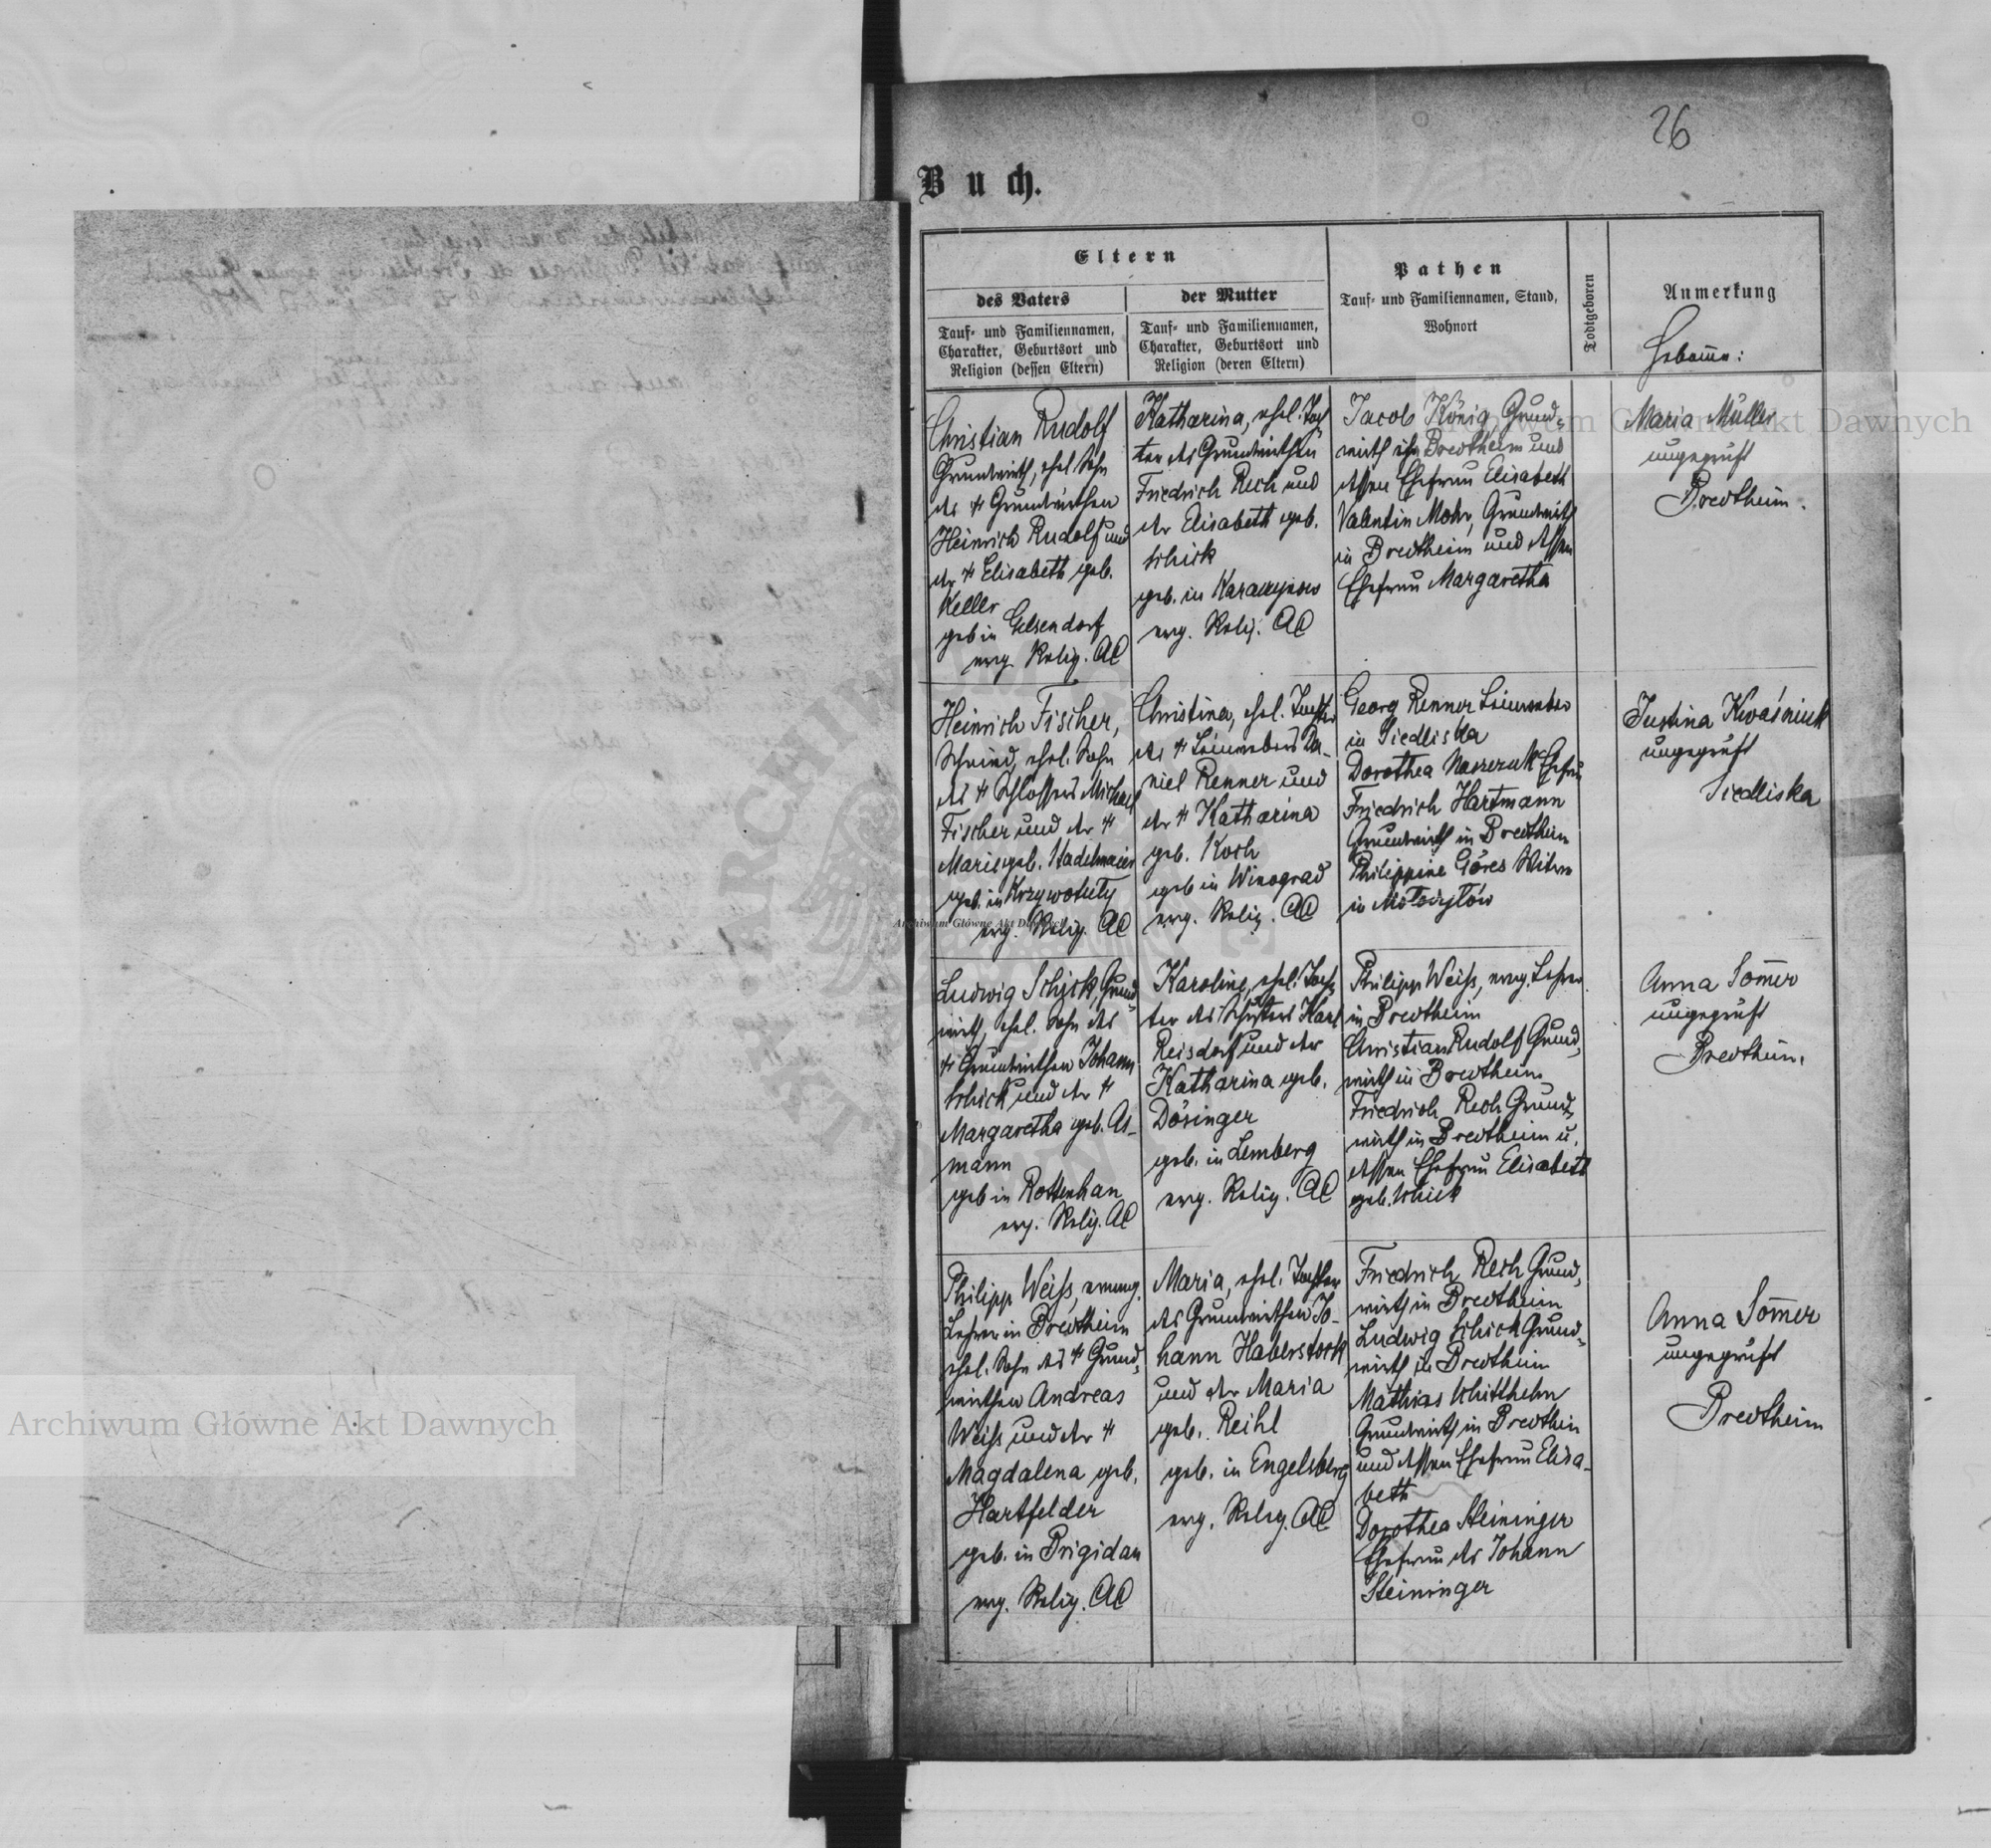 26
Buch.
Eltern
des Vaters
Tauf- und Familiennamen,
Charakter, Geburtsort und
Religion (dessen Eltern)
der Mutter
Tauf- und Familiennamen,
Charakter, Geburtsort und
Religion (deren Eltern)
Pathen
Tauf- und Familiennamen, Stand,
Wohnort
Todtgeboren
Anmerkung
Hebamme:
Christian Rudolf
Grundwirth, ehel. Sohn
des † Grundwirthen
Heinrich Rudolf und
der † Elisabeth geb.
Keller
geb in Gelsendorf
evg. Relig. AC
Katharina, ehel. Toch
ter des Grundwirthen
Friedrich Rech und
der Elisabeth geb.
Schick
geb. in
evg. Relig. AC
Jacob König, Grund-
wirth in Bredtheim und
dessen Ehefrau Elisabeth
Valentin Mohr, Grundwirth
in Bredtheim und dessen
Ehefrau Margaretha
Maria Müller
ungeprüft
Bredtheim.
Heinrich Fischer,
Schmied, ehel. Sohn
des † Schlossers Michael
Fischer und der †
Marie geb. Stadelmaier
geb. in Krzywotuły
evg. Relig. AC
Christina, ehel. Tochter
des † Leinwebers Da-
niel Renner und
der † Katharina
geb. Koch
geb in Winograd
evg. Relig. AC
Georg Renner Leinweber
in Siedliska
Dorothea Ehefrau
Friedrich Hartmann
Grundwirth in Bredtheim
Philippine Göres Witwe
in
Justina Kwaśniuk
ungeprüft
Siedliska
Ludwig Schick, Grund-
wirth, ehel. Sohn des
† Grundwirthen Johann
Schick und der †
Margaretha geb. As-
mann
geb in Rottenhan
evg. Relig. AC
Karoline, ehel. Toch-
ter des Schusters Karl
Reisdorf und der
Katharina geb.
Dösinger
geb. in Lemberg
evg. Relig. AC
Philipp Weiß, evg. Lehrer
in Bredtheim
Christian Rudolf Grund-
wirth in Bredtheim
Friedrich Rech Grund-
wirth in Bredtheim u.
dessen Ehefrau Elisabeth
geb. Schick
Anna Som̄er
ungeprüft
Bredtheim.
Philipp Weiß, evang.
Lehrer in Bredtheim
ehel. Sohn des † Grund-
wirthen Andreas
Weiß und der †
Magdalena geb.
Hartfelder
geb. in Brigidau
evg. Relig. AC
Maria, ehel. Tochter
des Grundwirthen Jo-
hann Haberstock
und der Maria
geb. Reihl
geb. in Engelsberg
evg. Relig. AC
Friedrich Rech Grund-
wirth in Bredtheim
Ludwig Schick Grund-
wirth in Bredtheim
Mathias
Grundwirth in Bredtheim
und dessen Ehefrau Elisa-
beth
Dorothea Steininger
Ehefrau des Johann
Steininger
Anna Som̄er
ungeprüft
Bredtheim
Archiwum Główne Akt Dawnych
Archiwum Główne Akt Dawnych
Archiwum Główne Akt Dawnych